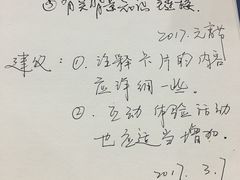 ③有关背景知识链接.
2017.元宵节
建议:①.注释卡片的内容
应详细一些.
②.互动体验活动
也应适当增加.
2017.3.7